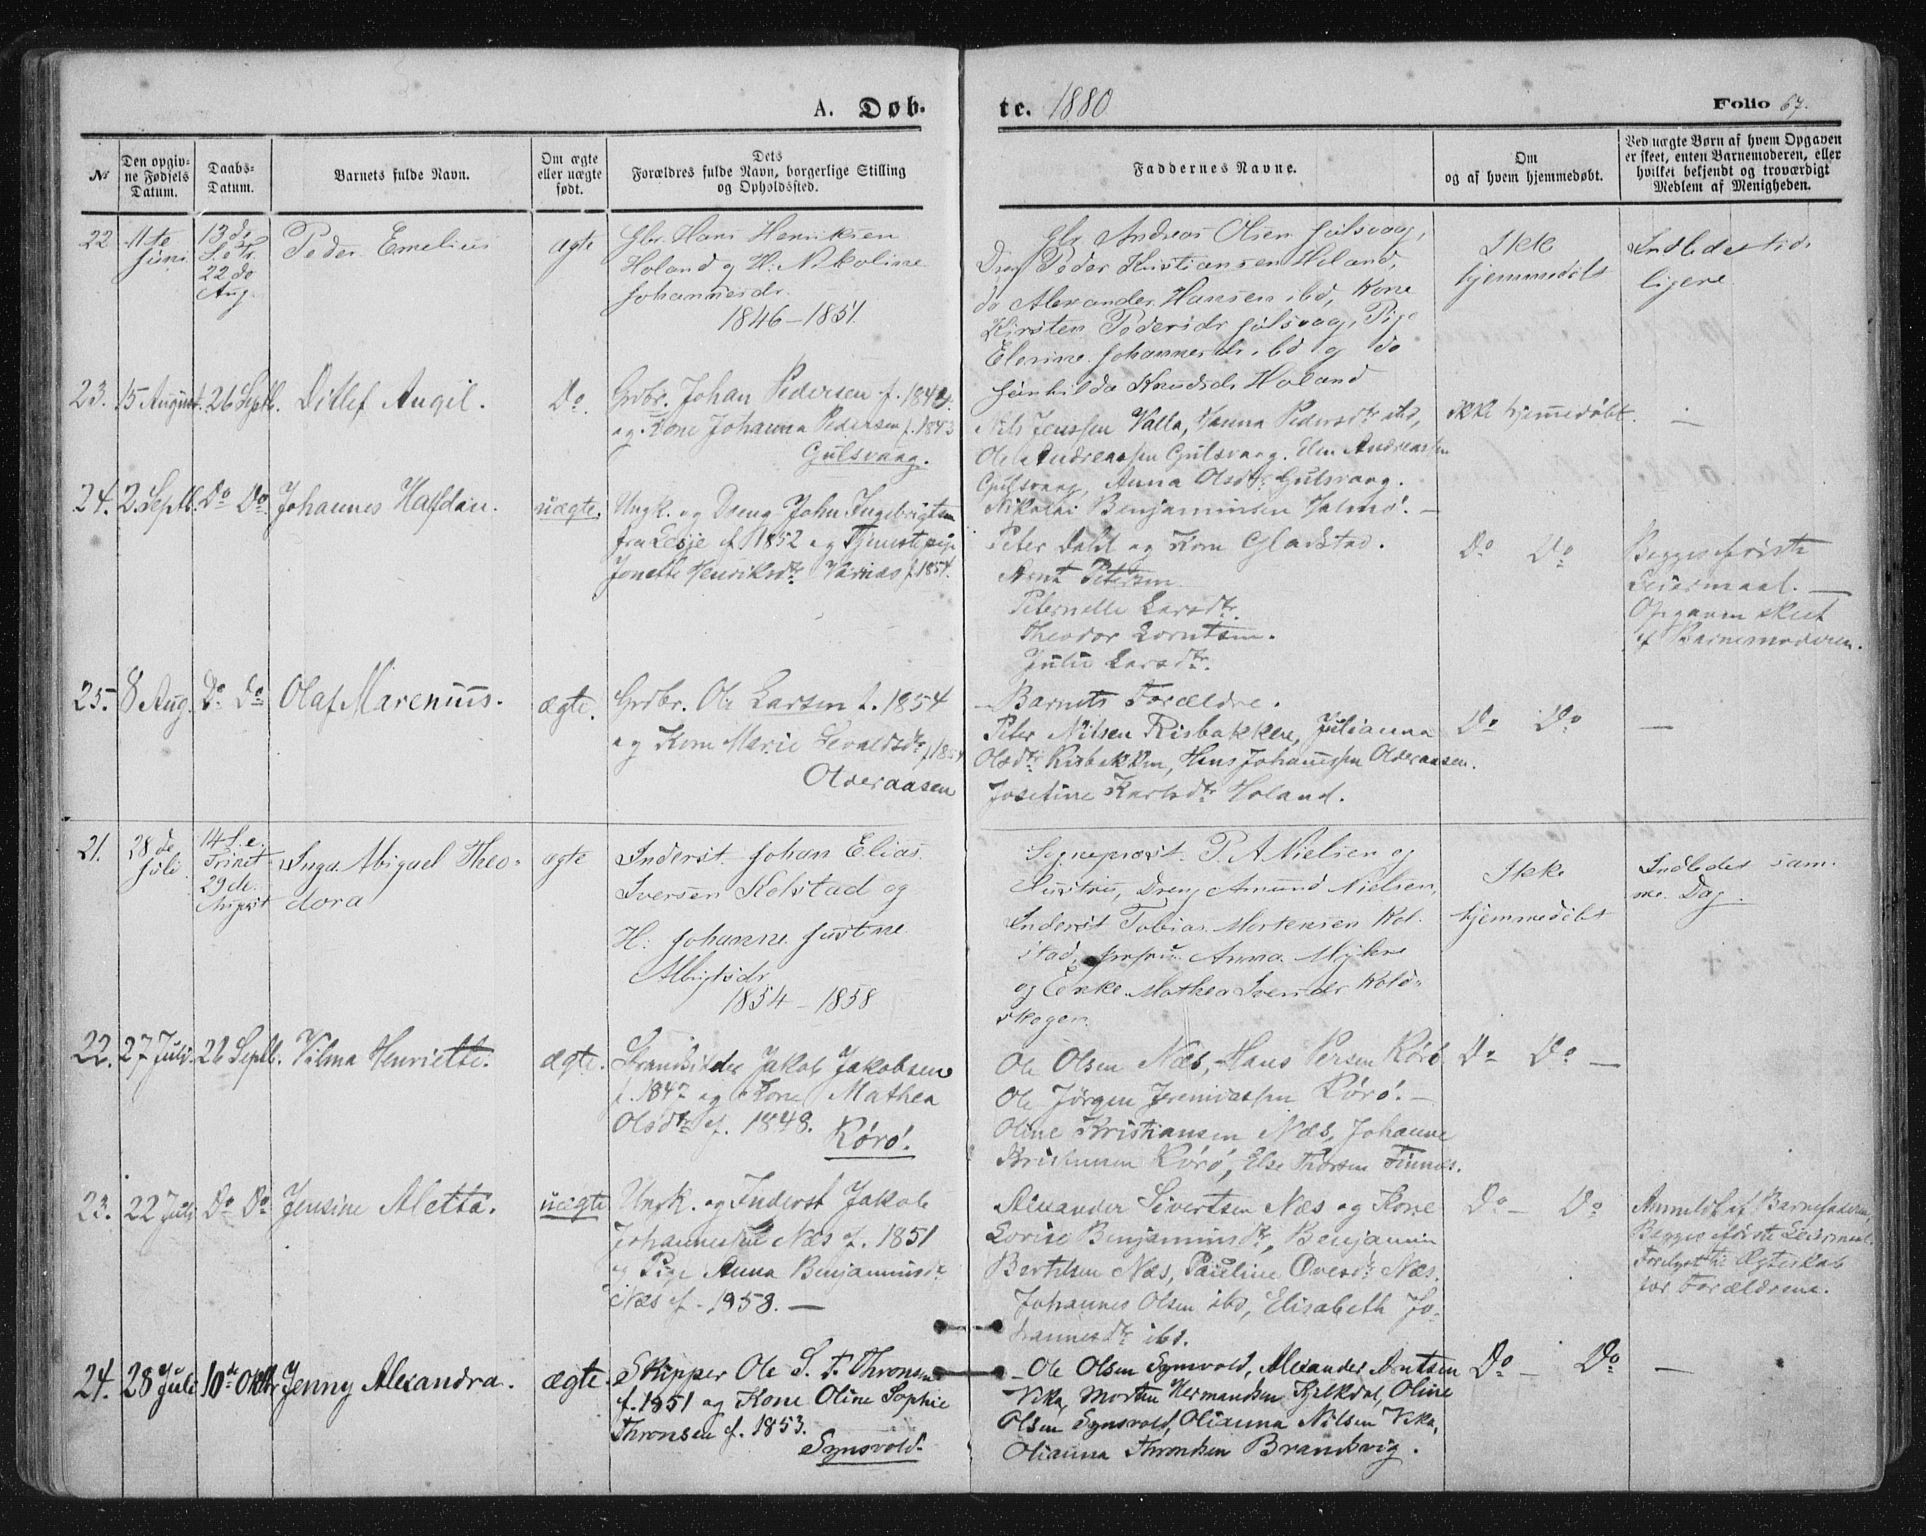 A. Døb-
te. 1880
Folio 67.
№
Den opgiv-
ne Fødsels
Datum.
Daabs-
Datum.
Barnets fulde Navn.
Om ægte
eller uægte
født.
Dets
Forældres fulde Navn, borgerlige Stilling
og Opholdssted.
Faddernes Navne.
Om
og af hvem hjemmedøbt.
Ved uægte Børn af hvem Opgaven
er skeet, enten Barnemoderen, eller
hvilket bekjendt og troværdigt
Medlem af Menigheden.
22
11te
Juni
22 do
Aug.
Peder Emelius
ægte
Gbr. Hans Henriksen
Holand og H. Nikoline
Johannesdr.
1846 – 1851
Gbr Andreas Olsen Gulsvaag,
Dreng Peder Kristiansen Holand,
do Alexander Hansen ibd, Kone
Kirsten Pedersdr Gulsvaag, Pige
Elerine Johannesdr ibd og do
Gunhilda Knudsdr Holand
Ikke
hjemmedøbt
Indledes tid-
ligere
23.
15 August.
26 Septb.
Ditlef Augil.
Do.
Grdbr. Johan Pedersen f. 1842
og Kone Johanna Pedersen f. 1843
Gulsvaag.
Nils Jenssen Valla, Hanna Pedersdtr ibd,
Ole Andreassen Gulsvaag, Elen Andreassen
Gulsvaag, Anna Olsdtr Gulsvaag.
Nikolai Benjaminsen Halmø. —
ikke hjemmedøbt.
—
24.
2 Septb.
Do Do
Johannes Halfdan.
uægte.
Ungk. og Dreng John Ingebrigtsen
fra Lesje f. 1852 og Tjenestepige
Jonette Henriksdtr Varnæs f. 1854.
Peter Dahl og Kone Gladstad.
Arnt Petersen
Peternelle Larsdtr.
Theodor Lorntsen.
Julie Larsdtr.
Do Do
Begges første
Leiermaal. —
Opgaven skeet
af Barnemoderen.
25.
8 Aug.
Do. Do
Olaf Marenius.
ægte.
Grdbr. Ole Larsen f. 1854
og Kone Marie Sevaldsdtr
Olderaasen
— Barnets Forældre.
Peter Nilsen Risbakken, Julianna
Olsdtr Risbakken, Hans Johannssen Olderaasen.
Josefine Karlsdtr Holand.
Do Do
—
21.
28de
Juli
14 S. e.
Trinit
29de.
August
Inga Abigael Theo-
dora
ægte
Inderst Johan Elias
Iversen Kolstad og
H: Johanne Justine
Albrigtsdr
1854 – 1858
Sogneprest P. A Nielsen og
Hustru, Dreng Amund Nielsen,
Inderst Tobias Mortensen Kol-
stad, Anna Myhre
og Enke Mathea Svendsdr Kols-
skogen.
Ikke
hjemmedøbt
Indledes sam-
me Dag.
22.
27 Juli.
26 Septb.
Vilma Henriette.
ægte.
Strandsidder Jakob Jakobsen
f. 1847 og Kone Mathea
Olsdtr f. 1848.
Rørø.
Ole Olsen Næs, Hans Persen Rørø
Ole Jørgen Jeremiassen Rørø. —
Oline Kristiansen Næs, Johanne
Kristiansen Rørø, Else Thorsen Finnes.
Do Do —
23.
22 Juli
Do Do
Jensine Aletta.
uægte
Ungk. og Inderst Jakob
Johannessen Næs f. 1851
og Pige Anna Benjaminsdtr
Næs f. 1858. —
Alexander Sivertsen Næs og Kone
Lovise Benjaminsdtr, Benjamin
Bertelsen Næs, Pauline Ovesdtr Næs.
Johannes Olsen ibd, Elisabeth Jo-
hannesdtr ibd.
Do — Do
Anmeldt af Barnefaderen,
Begges første Leiermaal.
Forlyst til Ægteskab
for Forældrene.
24.
28 Juli
10de Oktbr
Jenny Alexandra.
ægte.
Skipper Ole S. F. Thronsen
f. 1851 og Kone Oline Sophie
Thronsen f. 1853.
Synsvold.
— Ole Olsen Synsvold, Alexander Arntsen
Vika, Morten Hermandsen Fjelkdal, Oline
Olsen Synsvold, Olianna Nilsen Vika,
Olianna Throndsen Brandsvig.
Do — Do
—